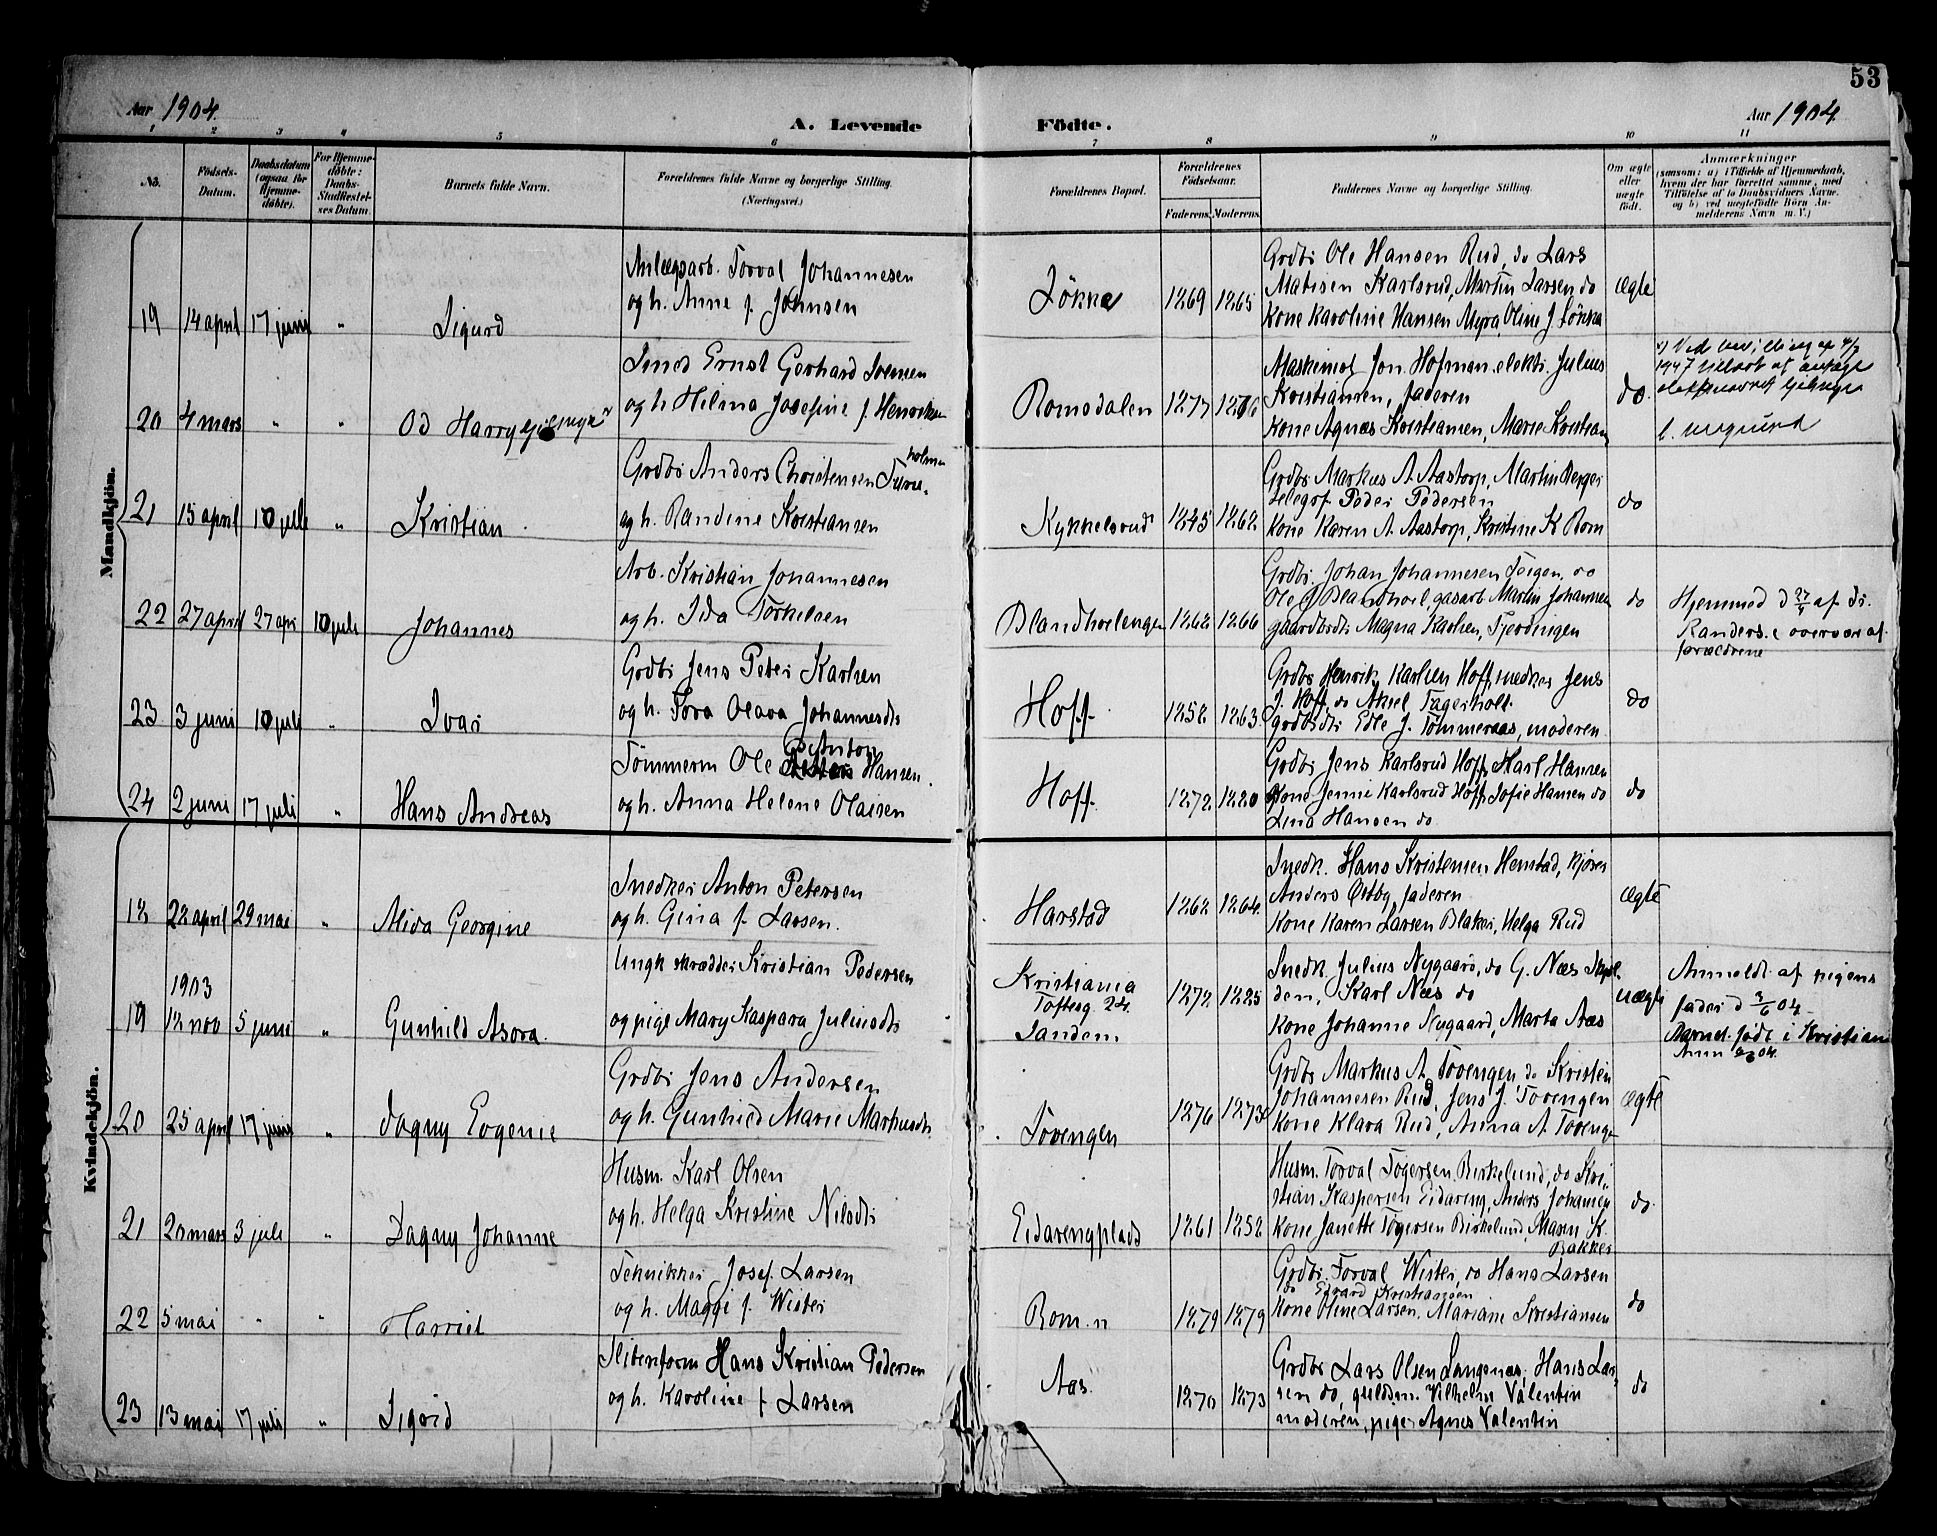 53
Aar 1904.
A. Levende Födte.
Aar 1904
1 2 3 4 5 6 7 8 9 10 11
No.
Födsels-Datum.
Daabsdatum (ogsaa for Hjemmedöbte).
For Hjemmedöbte: Daabs-Stadfæstelses Datum.
Barnets fulde Navn.
Forældrenes fulde Navne og borgerlige Stilling.
(Næringsvei.)
Forældrenes Bopæl.
Forældrenes Födselsaar.
Faderens. Moderens.
Faddernes Navne og borgerlige Stilling.
Om ægte eller uægte födt.
Anmærkninger
(saasom: a) i Tilfælde af Hjemmedaab,
hvem der har forrettet samme, med
Tilföielse af to Daabsvidners Navne,
og b) ved uægtefödte Börn An-
melderens Navn m. V.)
Mandkjön.
19 14 april 17 juni " Sigurd
Anlægsarb. Torval Johannesen
og h. Anne f. Johnsen
Løkka 1869 1865
Grdbr Ole Hansen Rud, do Lars
Matisen Karlsrud, Martin Larsen do
Kone Karoline Hansen Myra, Oline J. Løkka
ægte
20 4 mars " " Od Harry
Smed Ernst Gerhard Svensen
og h. Hilma Josefine f. Henriksen
Romsdalen 1877 1876
Maskinist Jon Hofman elektr. Julius
Kristiansen, faderen
Kone Agnæs Kristiansen, Marie Kristian
do.
1947 tillatt at antage
21 15 april 10 juli " Kristian
Grdbr Anders Christensen Ture-
holm
og h. Randine Kristiansen
Kykkelsrud 1845 1862
Grdbr Markus A. Aastorp, Martin Berger
telegrf. Peder Pedersen
Kone Karen A. Aastorp, Kristine K Rom
do
22 27 april 27 apr 10 juli Johannes
Arb. Kristian Johannesen
og h. Ida Torkelsen
Blandhoelengen 1862 1866
Grdbr. Johan Johannesen Teigen, do
Ole Blandhoel, gaasarb Martin Johannen
gaardbrdtr Magna Karlsen, Tjernengen
do
Hjemmed d 27/4 af Fr.
Randers i overvær af
forældrene
23 3 juni 10 juli " Ivar
Grdbr Jens Peter Karlsen
og h. Tora Olava Johannesdtr
Hoff. 1852 1863
Grdbr Henrik Karlsen Hoff, snedker Jens
J. Hoff, do Aksel Fagerholt.
grdbrdtr Edle J. Tømmeraas, moderen
do
24 2 juni 17 juli " Hans Andreas
Tømmerm Ole Anton Hansen.
og h. Anna Helene Olaisen
Hoff. 1872 1880
Grdbr Jens Karlsrud Hoff, Karl Hansen
Kone Jenni Karlsrud Hoff Sofie Hansen do
Lina Hansen do
do
Kvindekjön.
18 28 april 29 mai " Alida Georgine
Snedker Anton Petersen
og h. Gina f. Larsen.
Harstad 1862 1864
Snedk. Hans Kristensen Henstad, kjører
Anders Østby, faderen
Kone Karen Larsen Blaker, Helga Rud
Ægte
1903
19 18 nov 5 juni " Gunhild Asora
Ungk skrædder Kristian Pedersen
og pige Mary Kaspara Juliusdtr
Kristiania
Toftesg. 24.
Sandem 1872 1885
Snedk. Julius Nygaard, do G. Næs Skjol-
den, Karl Næs do
Kone Johanne Nygaard, Marta Aas
uægte
Anmeldt af pigens
fader d 3/6 04.
Barnet født i Kristian
20 25 april 17 juni " Dagny Evgenie
Grdbr Jens Andersen
og h. Gunhild Marie Markusdtr.
Tovengen 1876 1873
Grdbr Markus A. Tovengen do Kristen
Johannesen Rud, Jens J. Tovengen
Kone Klara Rud, Anna A. Tovenge
Ægte
21 20 mars 3 juli " Dagny Johanne
Husm. Karl Olsen
og h. Helga Kristine Nilsdtr
Eidarengplads 1861 1852
Husm. Torval Togersen Birkelund, do Kri-
stian Kaspersen Eidareng, Anders Johansen
Kone Janette Togersen Birkelund, Maren K.
Bakker
do.
22 5 mai " " Harriet
Tehnikker Josef Larsen
og h. Maggi f. Wister
Rom. n 1879 1879
Grdbr. Torval Wister, do Hans Larsen
do Edvard Kristiansen
Kone Oline Larsen, Mariane Kristiansen
do
23 13 mai 17 juli " Sigrid
Sliberiform Hans Kristian Pedersen
og h. Karoline f Larsen
Aas. 1870 1873
Grdbr Lars Olsen Langenæs, Hans Lar-
sen do, guldsm. Vilhelm Valentin
moderen, pige Agnes Valentin
do